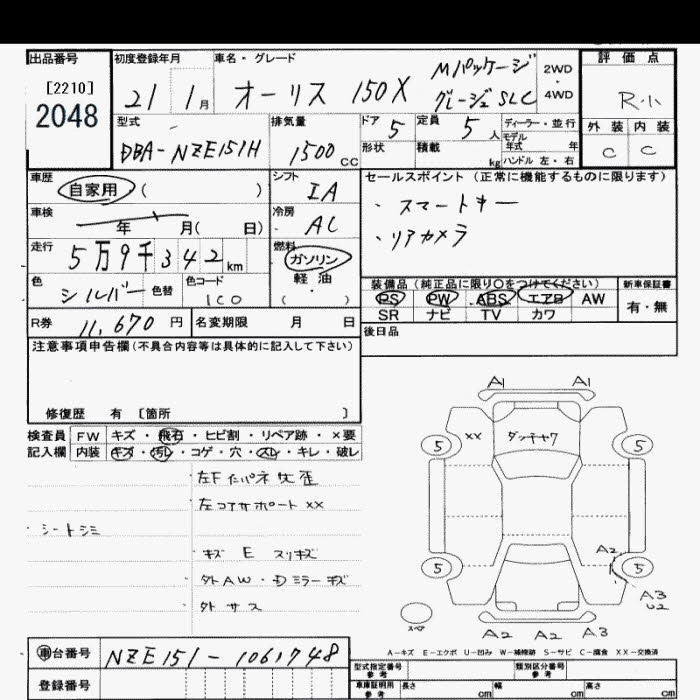 出品番号 初度登録年月 車名・グレード 評価点
[2210]
2048
21 1月 オーリス 150X Mパッケージ 2WD・4WD R.
型式 排気量 ドア 5 定員 5人 ディーラー・並行 外装 内装
DBA-NZE151H 1500CC 形状 積載 kg モデル年式 年 ハンドル 左・右 C C
車歴 自家用 ( ) シフト IA セールスポイント (正常に機能するものに限ります)
車検 年 月( 日) 冷房 AC ・スマートキー
走行 5万9千342km 燃料 ガソリン ・リアカメラ
軽油
( ・ )
色 シルバー 色替 色コード 1C0 装備品 (純正品に限り〇をつけてください) 新車保証書
PS PW ABS エアB AW 有・無
SR ナビ TV カワ
R券 11,670円 名変期限 月 日 後日品
注意事項申告欄(不具合内容等は具体的に記入して下さい)
修復歴 有 〔箇所 〕
検査員 FW キズ・飛石・ヒビ割・リペア跡・×要
記入欄 内装 キズ・汚レ・コゲ・穴・スレ・キレ・破レ
・シートシミ
・左コアサポート XX
・キズ E スリキズ
・外AW・Dミラーキズ
・外 サス
A1 A1
XX
5 5
5 5
A2
A3
U2
スペア
A2 A2 A3
A-キズ E-エクボ U-凹み W-補修跡 S-サビ C-腐食 XX-交換済
車台番号 NZE151-1061748
登録番号
型式指定番号 参考 類別区分番号 参考
車庫証明用 参考 長さ cm 幅 cm 高さ cm